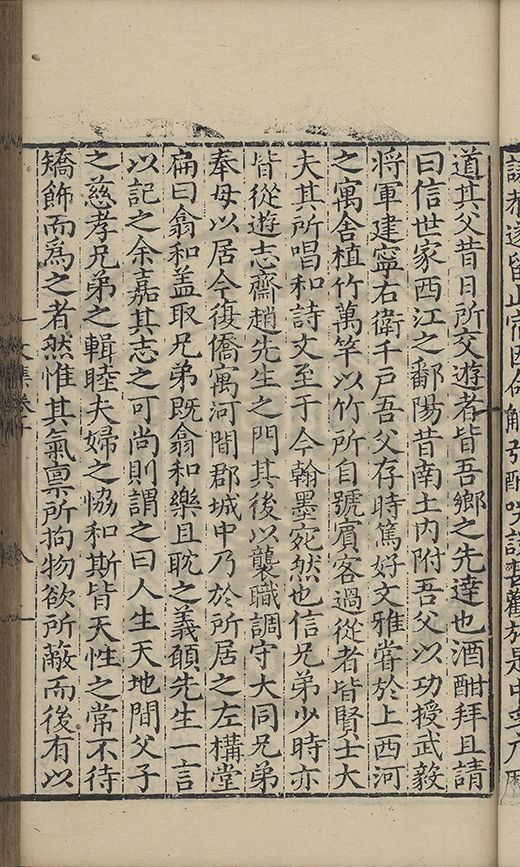 道其父昔日所交遊者皆吾鄉之先達也酒酣拜且請
曰信世家西江之鄱陽昔南土內附吾父以功授武毅
將軍建寧右衛千戶吾父存時篤好文雅嘗於上西河
之寓舍植竹萬竿以竹所自號賓客過從者皆賢士大
夫其所唱和詩文至于今翰墨宛然也信兄弟少時亦
皆從遊志齋趙先生之門其後以襲職調守大同兄弟
奉母以居今復僑寓河間郡城中乃於所居之左構堂
扁曰翕和蓋取兄弟既翕和樂且耽之義願先生一言
以記之余嘉其志之可尚則謂之曰人生天地間父子
之慈孝兄弟之輯睦夫婦之恊和斯皆天性之常不待
矯飾而爲之者然惟其氣禀所拘物欲所蔽而後有以